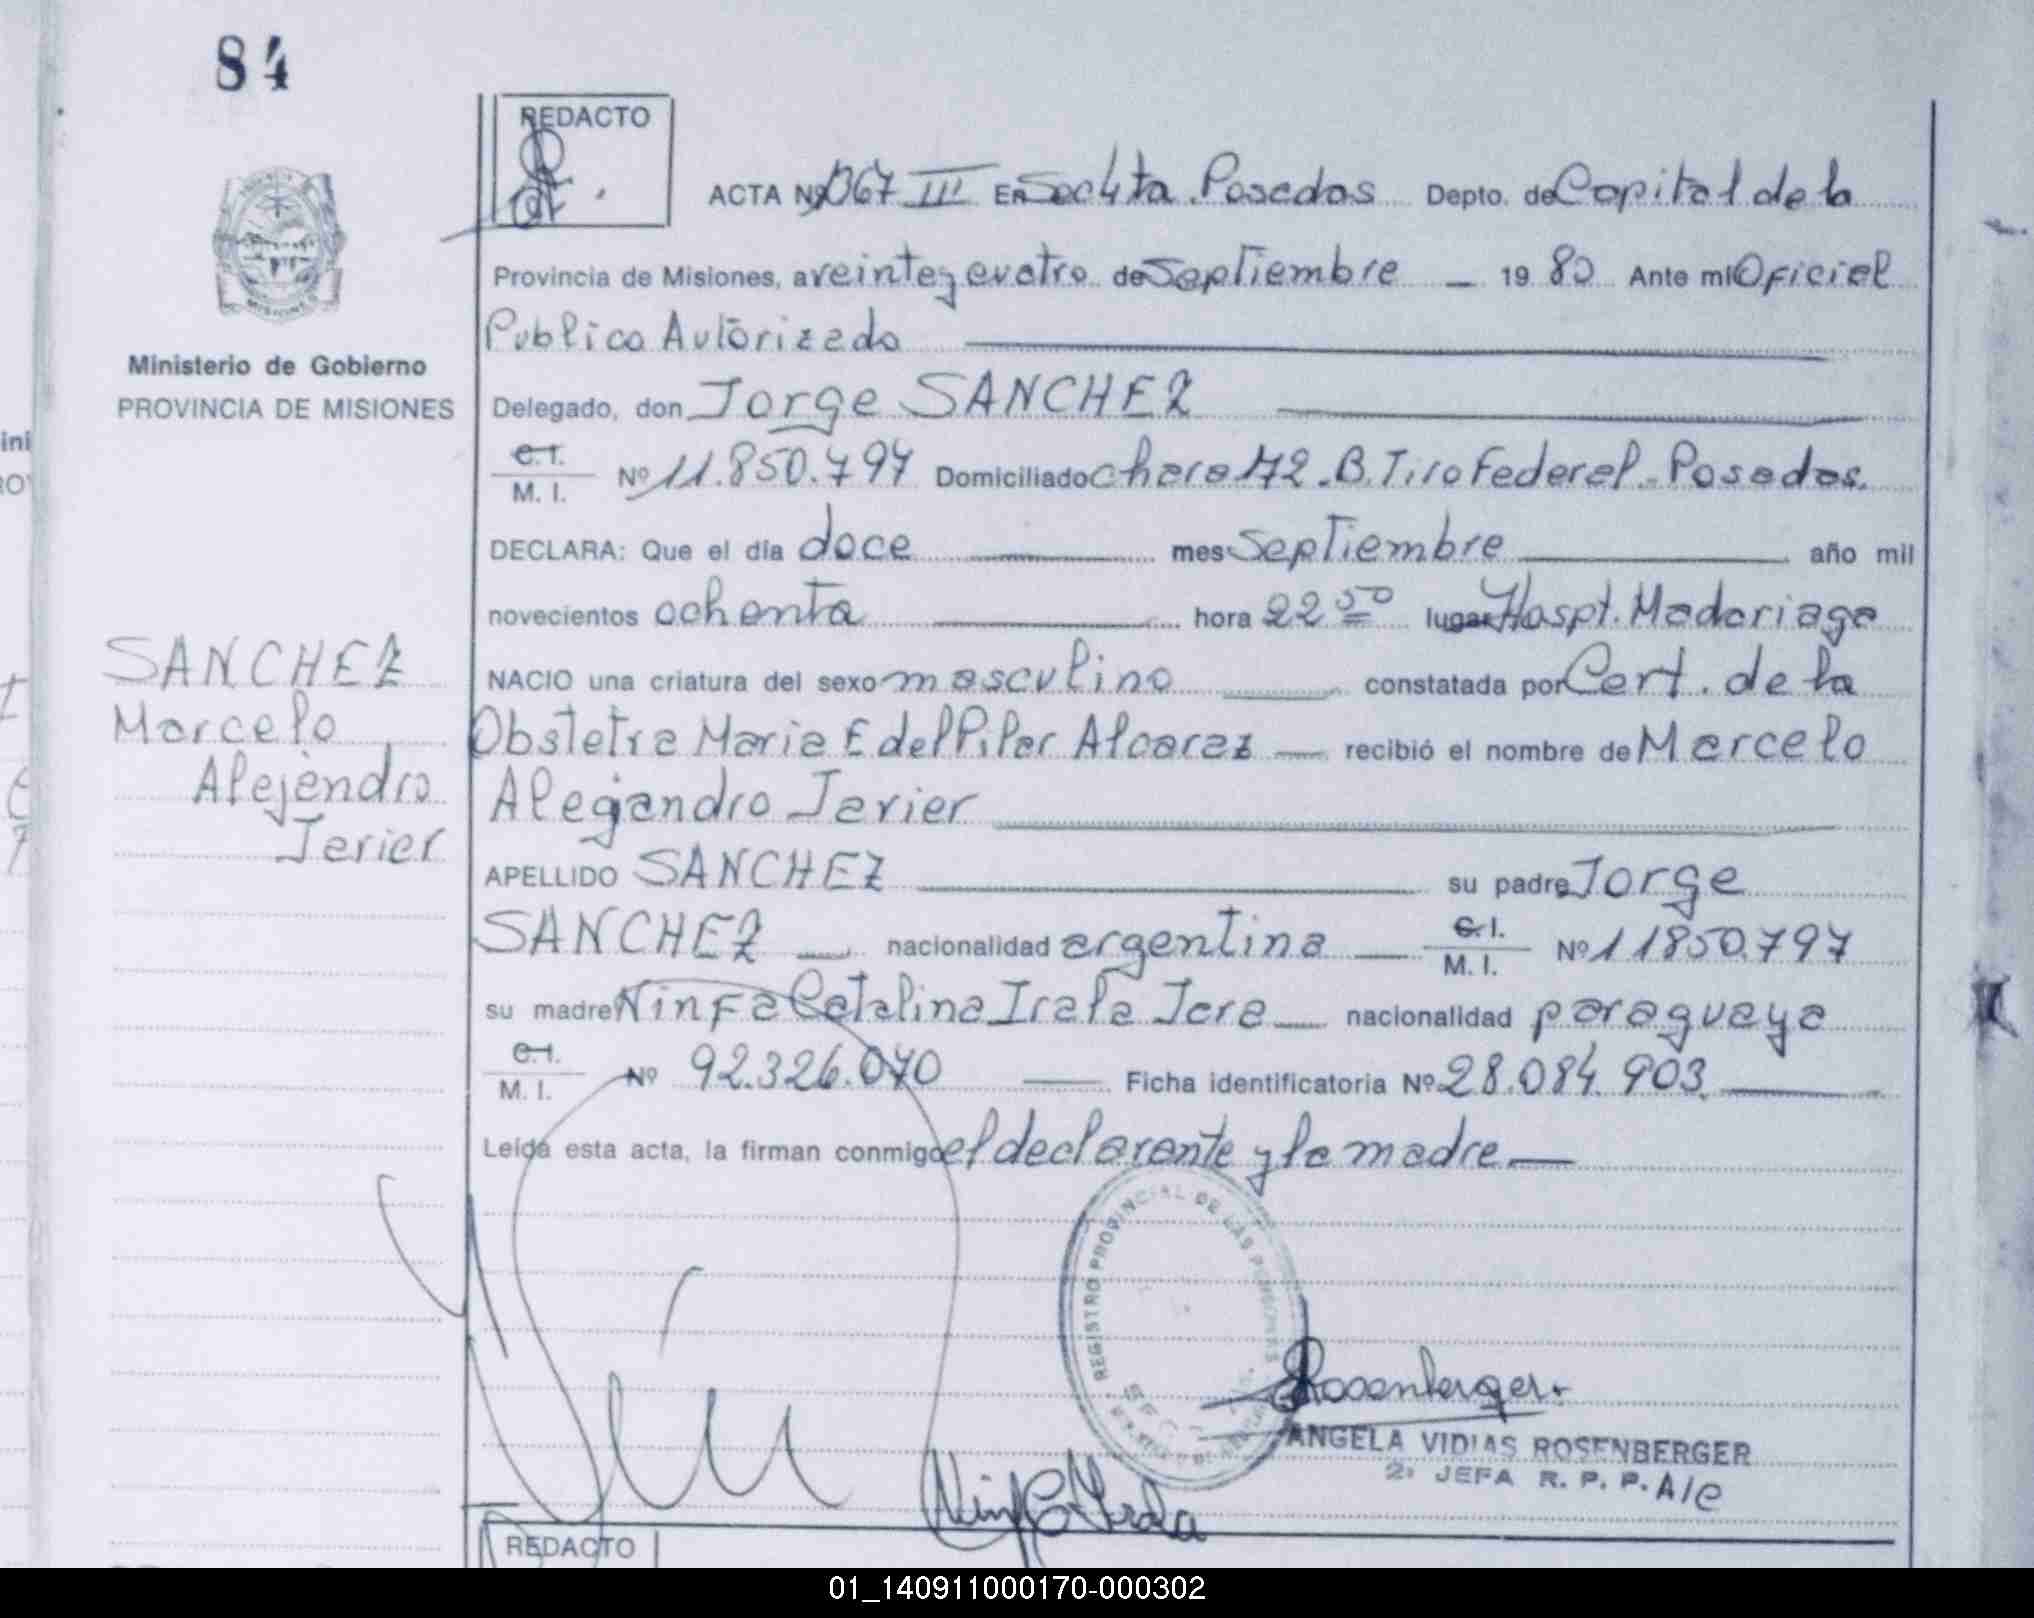 84
REDACTO
ACTA Nº 1367 III EN Secc 4ta. Posadas Depto. de Capital de la
Provincia de Misiones, a veinte y cuatro de Septiembre 19 80 Ante mi Oficial
Publico Autorizado
Ministerio de Gobierno
PROVINCIA DE MISIONES
Delegado, don Jorge SANCHEZ
C.I.
M. I. Nº 11.850.797 Domiciliado chara 172 . B. Tiro Federal - Posadas.
DECLARA: Que el día doce mes Septiembre año mil
novecientos ochenta hora 22 50 lugar Hospt. Madariaga
SANCHEZ
Marcelo
Alejandro
Javier
NACIO una criatura del sexo masculino constatada por Cert. de la
Obstetra Maria E del Pilar Alcaraz recibió el nombre de Marcelo
Alejandro Javier
APELLIDO SANCHEZ su padre Jorge
SANCHEZ nacionalidad argentina C.I. M. I. Nº 11850.797
su madre Ninfa Catalina Irala Jara nacionalidad paraguaya
C.I.
M. I. Nº 92.326.070 Ficha identificatoria Nº 28.084.903.
Leída esta acta, la firman conmigo el declarante y la madre
REGISTRO PROVINCIAL DE LAS PERSONAS
Rosenberger
ANGELA VIDIAS ROSENBERGER
2ª JEFA R. P. P. A/C
Ninfa C Irala
REDACTO
01_140911000170-000302